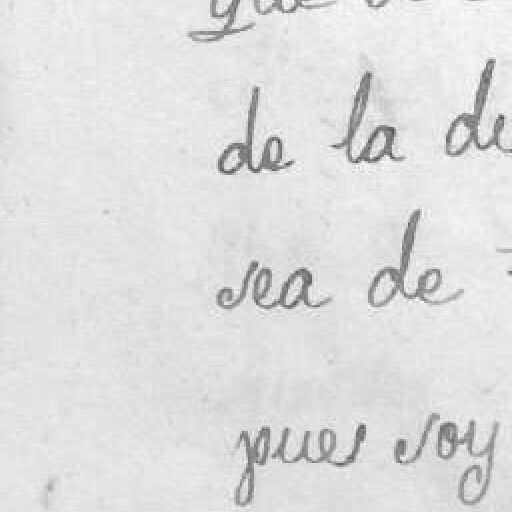 de la
sea de
pues soy